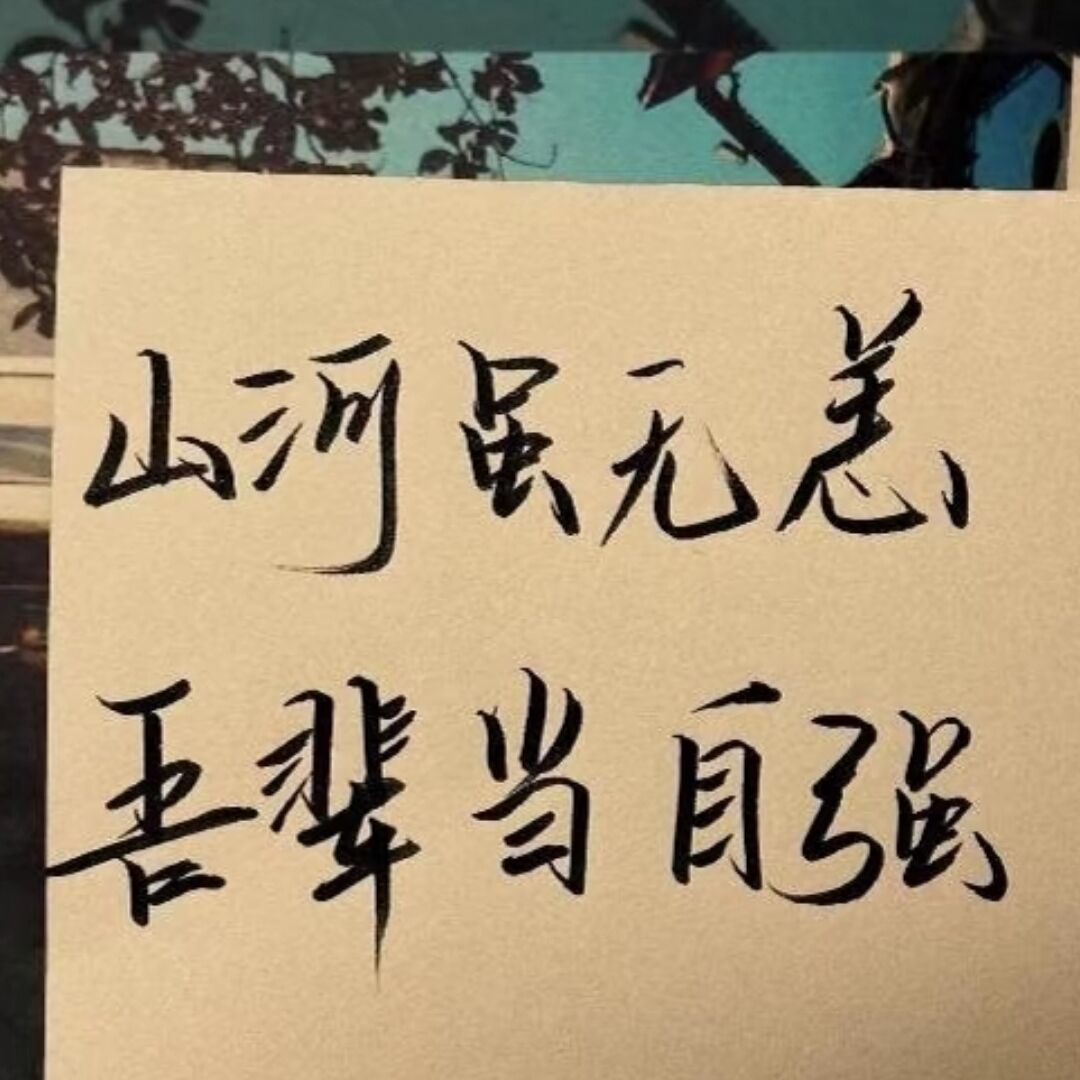 山河虽无恙
吾辈当自强